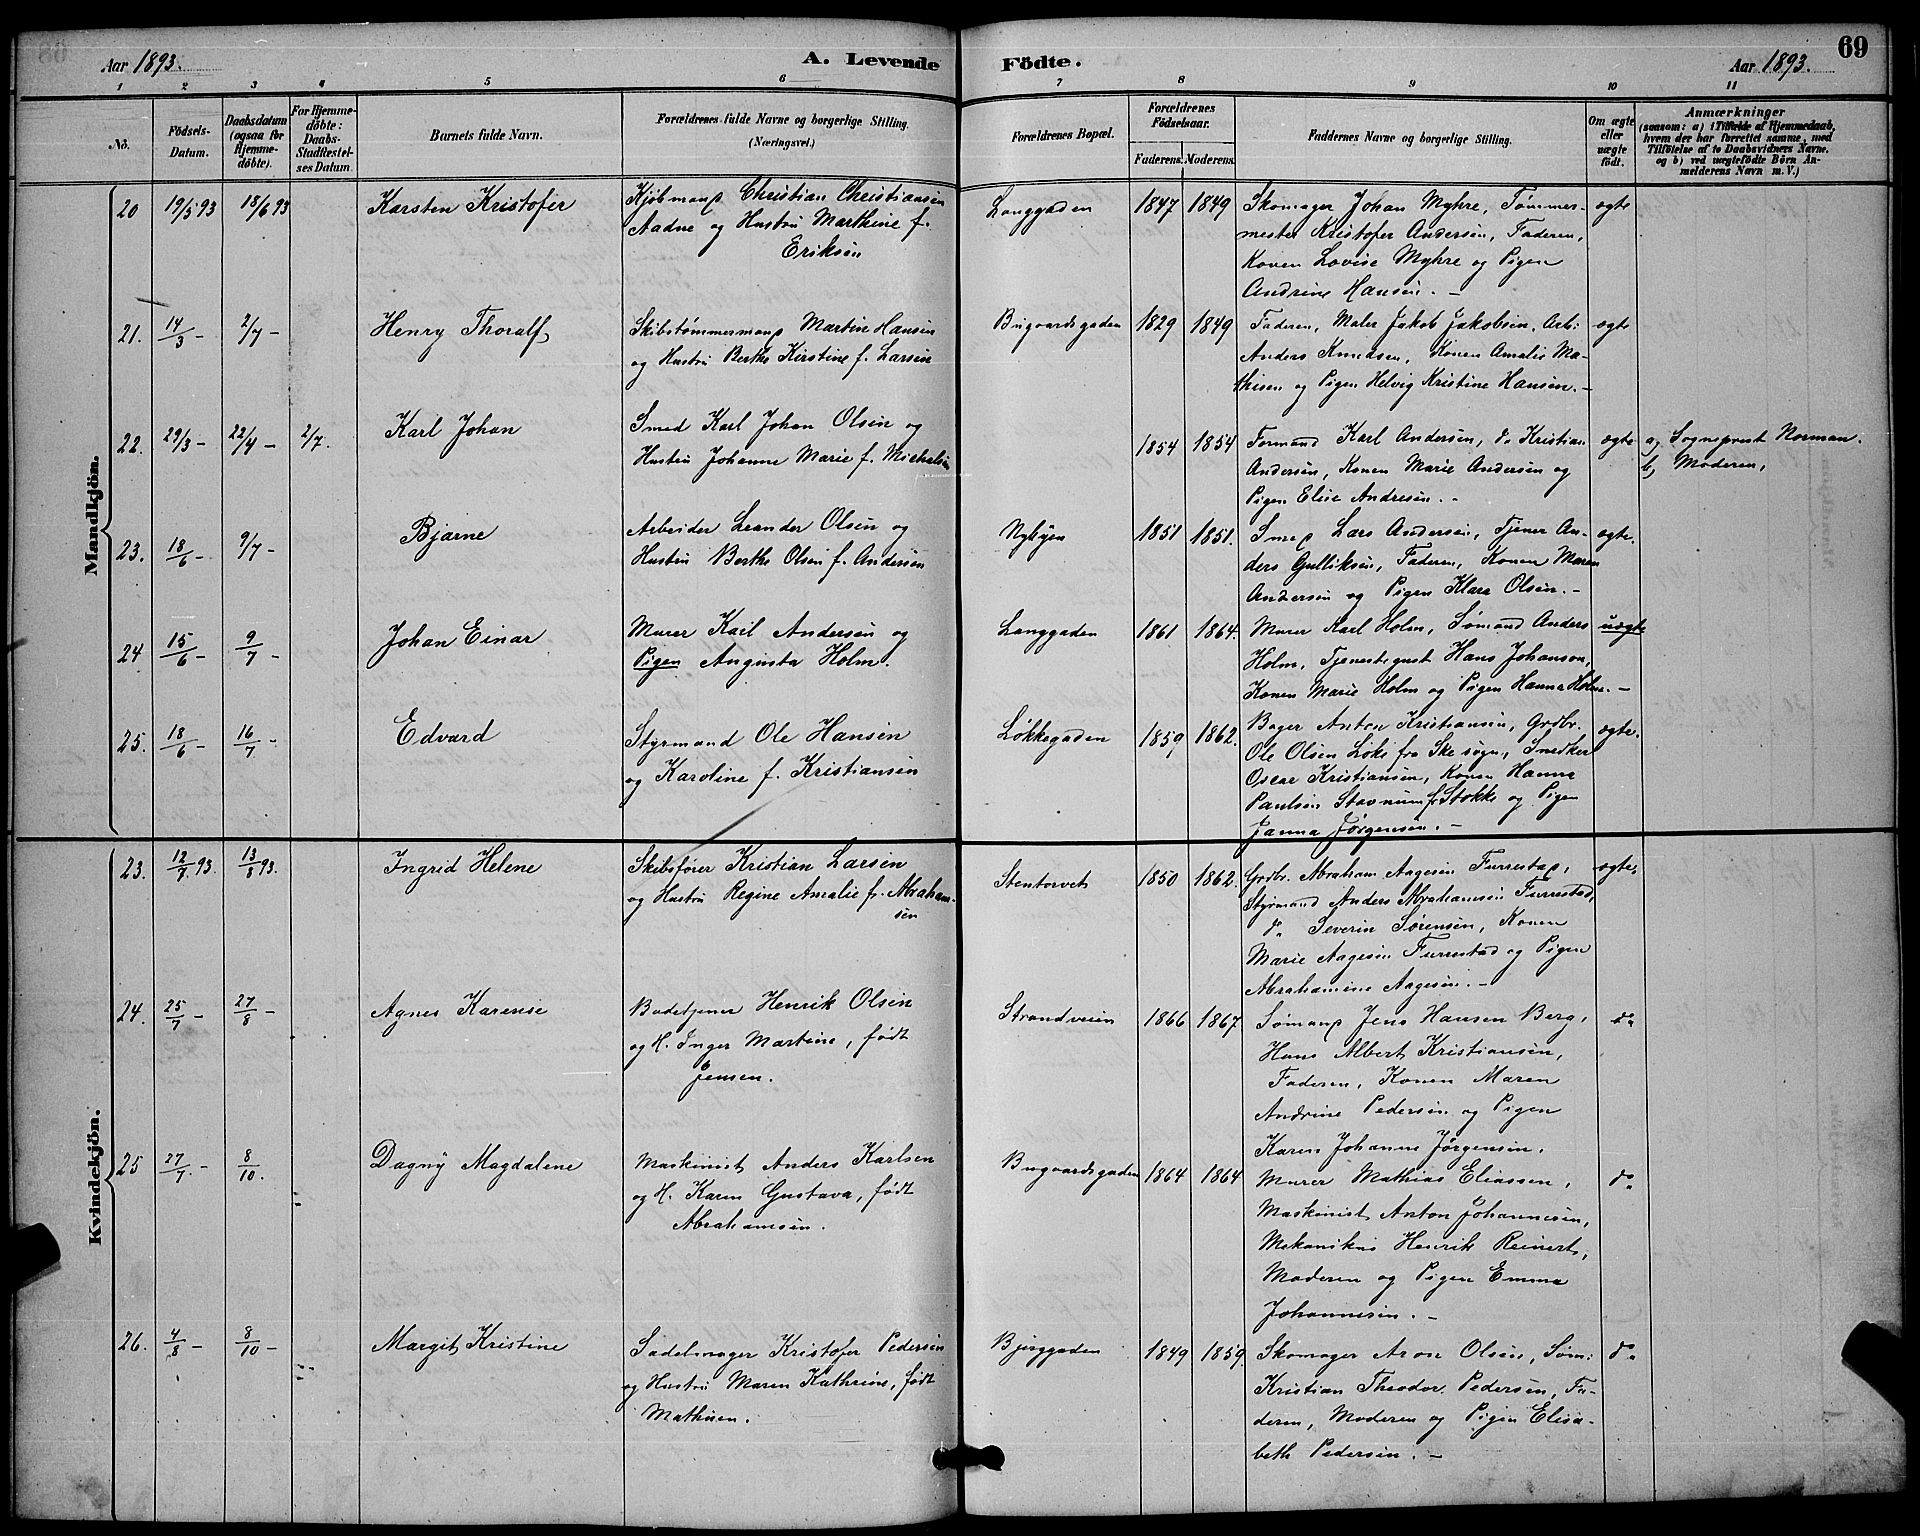 Aar 1893.
A. Levende Födte.
Aar 1893.
69
1 2 3 4 5 6 7 8 9 10 11
No.
Födsels-
Datum.
Daabsdatum
(ogsaa for
Hjemme-
döbte).
For Hjemme-
döbte:
Daabs-
Stadfæstel-
ses Datum.
Barnets fulde Navn.
Forældrenes fulde Navne og borgerlige Stilling.
(Næringsvei.)
Forældrenes Bopæl.
Forældrenes
Födselsaar.
Faderens. Moderens.
Faddernes Navne og borgerlige Stilling.
Om ægte
eller
uægte
født.
Anmærkninger
(saasom: a) i Tilfælde af Hjemmedaab,
hvem der har forrettet samme, med
Tilföielse af to Daabsvidners Navne,
og b) ved uægtefödte Börn An-
melderens Navn m. V.)
Mandkjön.
20 19/5 93 18/6 93 Karsten Kristofer
Kjøbmand Christian Christiansen
Aadne og Hustru Marthine f.
Eriksen
Langgaden 1847 1849
Skomager Johan Myhre, Tømmer-
mester Kristofer Andersen, Faderen,
Konen Lovise Myhre og Pigen
Andrine Hansen. -
ægte
21. 14/3 - 2/7 - Henry Thoralf
Skibstømmermand Martin Hansen
og Hustru Berthe Kirstine f. Larsen
Bugaardsgaden 1829 1849
Faderen, Maler Jakob Jakobsen, Arb:
Anders Knudsen, Konen Amalie Ma-
thisen og Pigen Helvig Kristine Hansen. -
ægte
22. 29/3 - 22/4 - 2/7. Karl Johan
Smed Karl Johan Olsen og
Hustru Johanne Marie f. Michelsen
1854 1854
Formand Karl Andersen, do Kristian
Andersen, Konen Marie Andersen og
Pigen Elise Andresen. -
ægte
a, Sogneprest Norman.
b, Moderen,
23. 18/6 - 9/7 - Bjarne
Arbeider Leander Olsen og
Hustru Berthe Olsen f. Andersen
Nybyen 1851 1851.
Smed Lars Andersen, Tjener An-
ders Gulliksen, Faderen, Konen Maren
Andersen og Pigen Klara Olsen. -
ægte.
24 15/6 - 9/7 - Johan Einar
Murer Karl Andersen og
Pigen Augusta Holm.
Langgaden 1861 1864.
Murer Karl Holm, Sømand Anders
Holm, Tjenestegut Hans Johanson,
Konen Marie Holm og Pigen Hanna Holm. -
uægte
25. 18/6 - 16/7 - Edvard
Styrmand Ole Hansen
og Karoline f. Kristiansen
Løkkegaden 1859 1862.
Bager Anton Kristiansen, Grdbr.
Ole Olsen Løke fra Ske sogn, Snedker
Oscar Kristiansen, Konen Hanna
Paulsen Stavnum fr Stokke og Pigen
Janna Jørgensen. -
ægte.
Kvindekjön.
23. 12/7 93. 13/8 93. Ingrid Helene
Skibsfører Kristian Larsen
og Hustru Regine Amalie f. Abraham-
sen
Stentorvet 1850 1862.
Grdbr. Abraham Aagesen Furrestad,
Styrmand Anders Abrahamsen Furrestad,
do Severin Sørensen, Konen
Marie Aagesen Furrestad og Pigen
Abrahamine Aagesen. -
ægte.
24. 25/7 - 27/8 - Agnes Karense
Badetjener Henrik Olsen
og H. Inger Martine, født
Jensen.
Strandveien 1866 1867.
Sømand Jens Hansen Berg,
Hans Albert Kristiansen,
Faderen, Konen Maren
Andrine Pedersen og Pigen
Karen Johanne Jørgensen.
do
25 27/7. - 8/10. Dagny Magdalene
Maskinist Anders Karlsen
og H. Karen Gustava, født
Abrahamsen.
Bugaardsgaden 1864 1864
Murer Mathias Eliassen,
Maskinist Anton Johannesen,
Mekanikus Henrik Reinert,
Moderen og Pigen Emma
Johannesen. -
do
26. 4/8 - 8/10 - Margit Kristine
Sadelmager Kristofer Pedersen
og Hustru Maren Kathrine, født
Mathisen.
Bjerggaden 1849 1859.
Skomager Aron Olsen, Søm:
Kristian Theodor Pedersen, Fa-
deren, Moderen og Pigen Elisa-
beth Pedersen. -
do